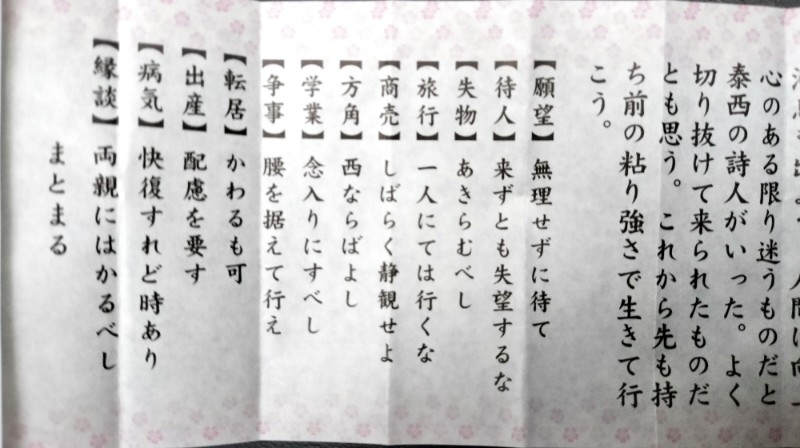 心のある限り迷うものだと
泰西の詩人がいった。よく
切り抜けて来られたものだ
とも思う。これから先も持
ち前の粘り強さで生きて行
こう。
【願望】無理せずに待て
【待人】来ずとも失望するな
【失物】あきらむべし
【旅行】一人にては行くな
【商売】しばらく静観せよ
【方角】西ならばよし
【学業】念入りにすべし
【争事】腰を据えて行え
【転居】かわるも可
【出産】配慮を要す
【病気】快復すれど時あり
【縁談】両親にはかるべし
まとまる